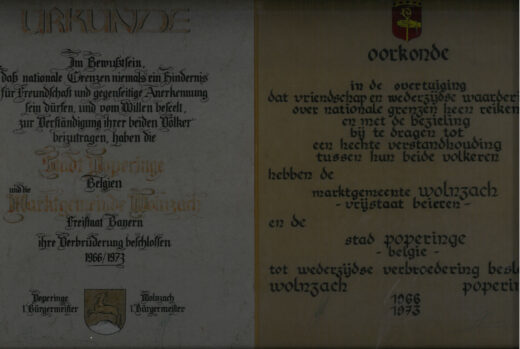 URKUNDE
Im Bewußtsein,
daß nationale Grenzen niemals ein Hindernis
für Freundschaft und gegenseitige Anerkennung
sein dürfen, und vom Willen beseelt,
zur Verständigung ihrer beiden Völker
beizutragen, haben die
Stadt Poperinge
Belgien
und die
Marktgemeinde Wolnzach
Freistaat Bayern
ihre Verbrüderung beschlossen
1966/1973
Poperinge Wolnzach
1. Bürgermeister 1. Bürgermeister
oorkonde
in de overtuiging
dat vriendschap en wederzijdse waarderi
over nationale grenzen heen reiken
en met de bezieling
bij te dragen tot
een hechte verstandhouding
tussen hun beide volkeren
hebben de
marktgemeente wolnzach
- vrijstaat beieren -
en de
stad poperinge
- belgie -
tot wederzijdse verbroedering besl
wolnzach poperin
1966
1973